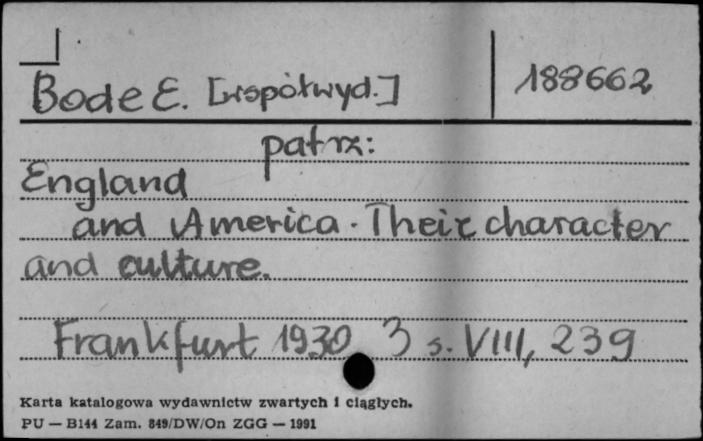 Bode E. [współwyd.] 188662
patrz:
England
and America. Their character
and culture.
Frankfurt 1930 3 s. VIII, 239
Karta katalogowa wydawnictw zwartych i ciągłych.
PU — B144 Zam. 849/DW/On ZGG — 1991